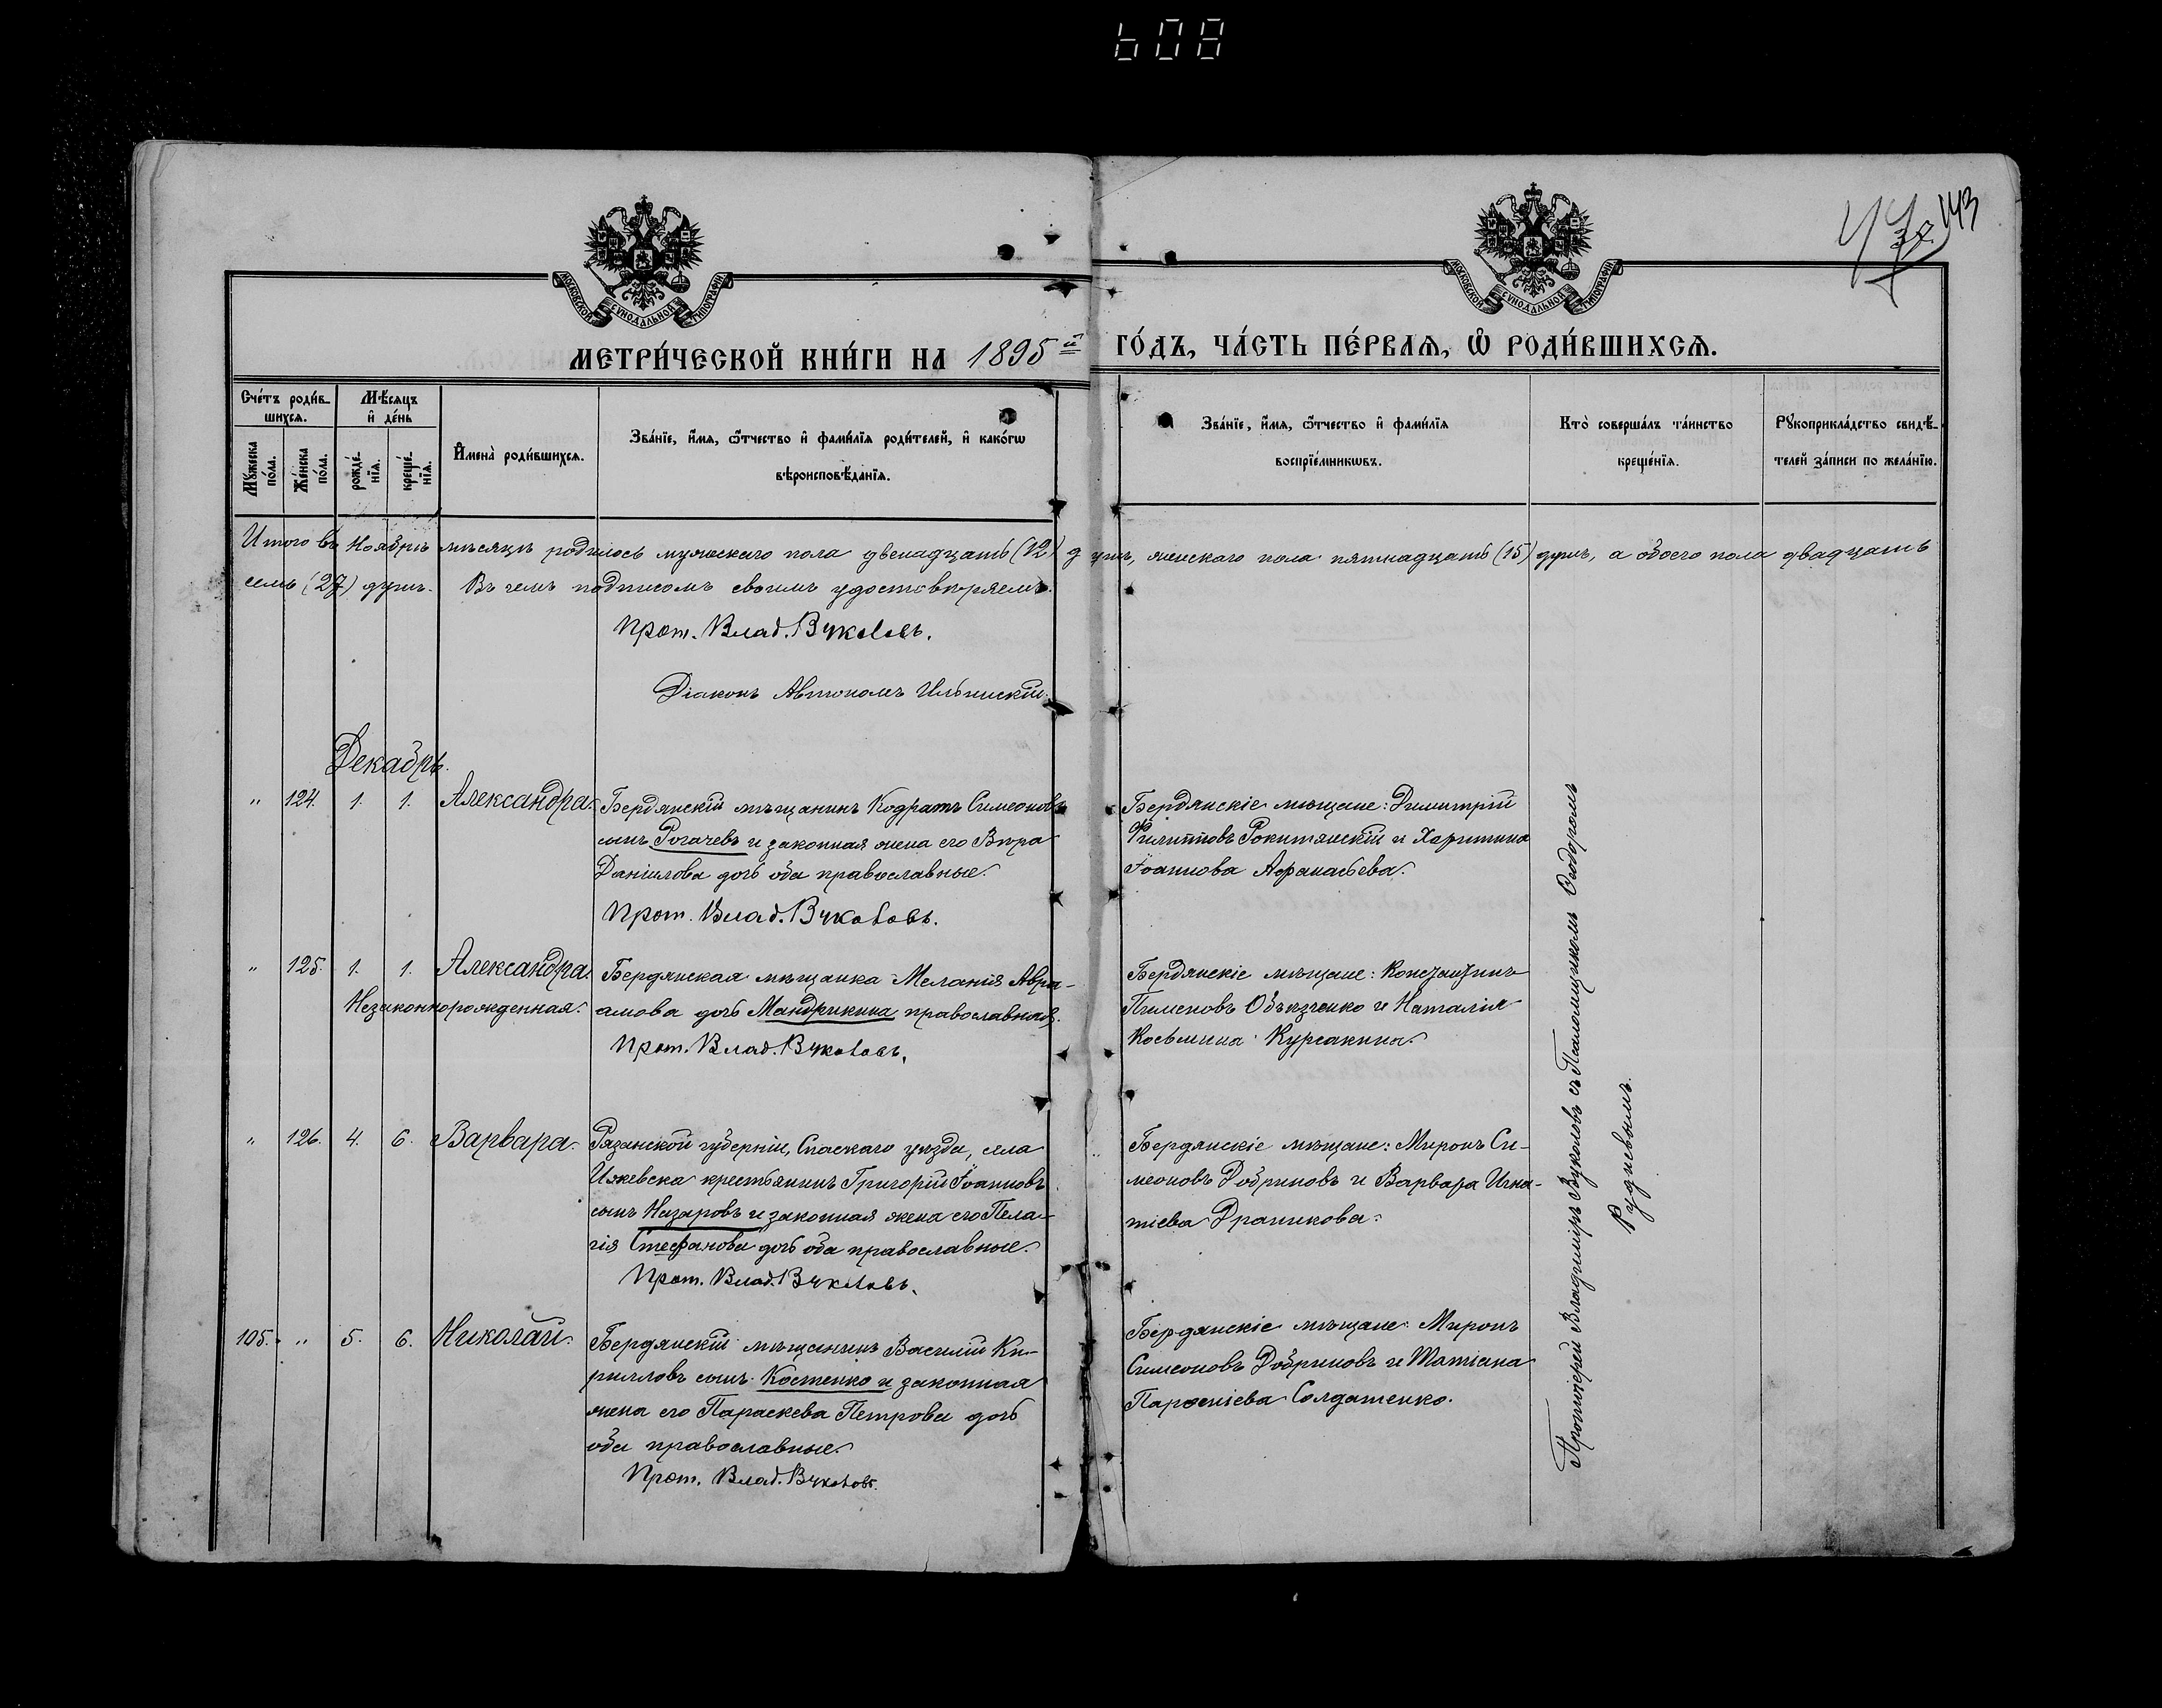 608
143
МОСКОВСКОЙ СѴНОДАЛЬНОЙ ТИПОГРАФІИ
МОСКОВСКОЙ СѴНОДАЛЬНОЙ ТИПОГРАФІИ
МЕТРИ́ЧЕСКОЙ КНИ́ГИ НА 1895й ГО́ДЪ, ЧА́СТЬ ПЕ́РВАѦ, Ѡ РОДИ́ВШИХСѦ.
Сче́тъ роди́в-
шихсѧ.
Мѣ́сѧцъ
и҆ де́нь
Мꙋ́жеска
по́ла.
Же́нска
по́ла.
рожде́-
нїѧ.
креще́-
нїѧ.
И҆мена̀ роди́вшихсѧ.
Зва́нїе, и҆́мѧ, ѻ҆́тчество и҆ фами́лїѧ роди́телей, и҆ како́гѡ
вѣроисповѣ́данїѧ.
Зва́нїе, и҆́мѧ, ѻ҆́тчество и҆ фами́лїѧ
воспрїе́мникѡвъ.
Кто̀ соверша́лъ та́инство
креще́нїѧ.
Рꙋкоприкла́дство свидѣ́-
телей за́писи по жела́нїю.
Итого въ Ноябрѣ мѣсяцѣ родилось мужескаго пола двенадцать (12) душъ, женскаго пола пятнадцать (15) душъ, а обоего пола двадцать
семь (27) душъ. Въ чемъ подписомъ своимъ удостовѣряемъ.
Прот. Влад. Вуколовъ.
Діаконъ Автономъ Ильинскій.
Декабрь.
" 124. 1. 1. Александра. Бердянскій мѣщанинъ Кодратъ Симеоновъ
сынъ Рогачевъ и законная жена его Вѣра
Даніилова дочь оба православные.
Прот. Влад. Вуколовъ.
Бердянскіе мѣщане: Димитрій
Филипповъ Рокитянскій и Харитина
Іоаннова Афанасьева.
" 125. 1. 1. Александра.
Незаконнорожденная.
Бердянская мѣщанка Меланія Авра-
амова дочь Мандрикина православная.
Прот. Влад. Вуколовъ.
Бердянскіе мѣщане: Константинъ
Пименовъ Объизченко и Наталія
Косьмина Курсакина.
" 126. 4. 6. Варвара. Рязанской губерніи, Спаскаго уѣзда, села
Ижевска крестьянинъ Григорій Іоанновъ
сынъ Назаровъ и законная жена его Пела-
гія Стефанова дочь оба православные.
Прот. Влад. Вуколовъ.
Бердянскіе мѣщане: Миронъ Си-
меоновъ Добриновъ и Варвара Игна-
тіева Драникова.
105. " 5. 6. Николай. Бердянскій мѣщанинъ Василій Ки-
рилловъ сынъ Костенко и законная
жена его Параскева Петрова дочь
оба православные.
Прот. Влад. Вуколовъ.
Бердянскіе мѣщане: Миронъ
Симеоновъ Добриновъ и Татіана
Парфеніева Солдатенко.
Протоіерей Владиміръ Вуколовъ съ Псаломщикомъ Ѳеодоромъ
Рудневымъ.